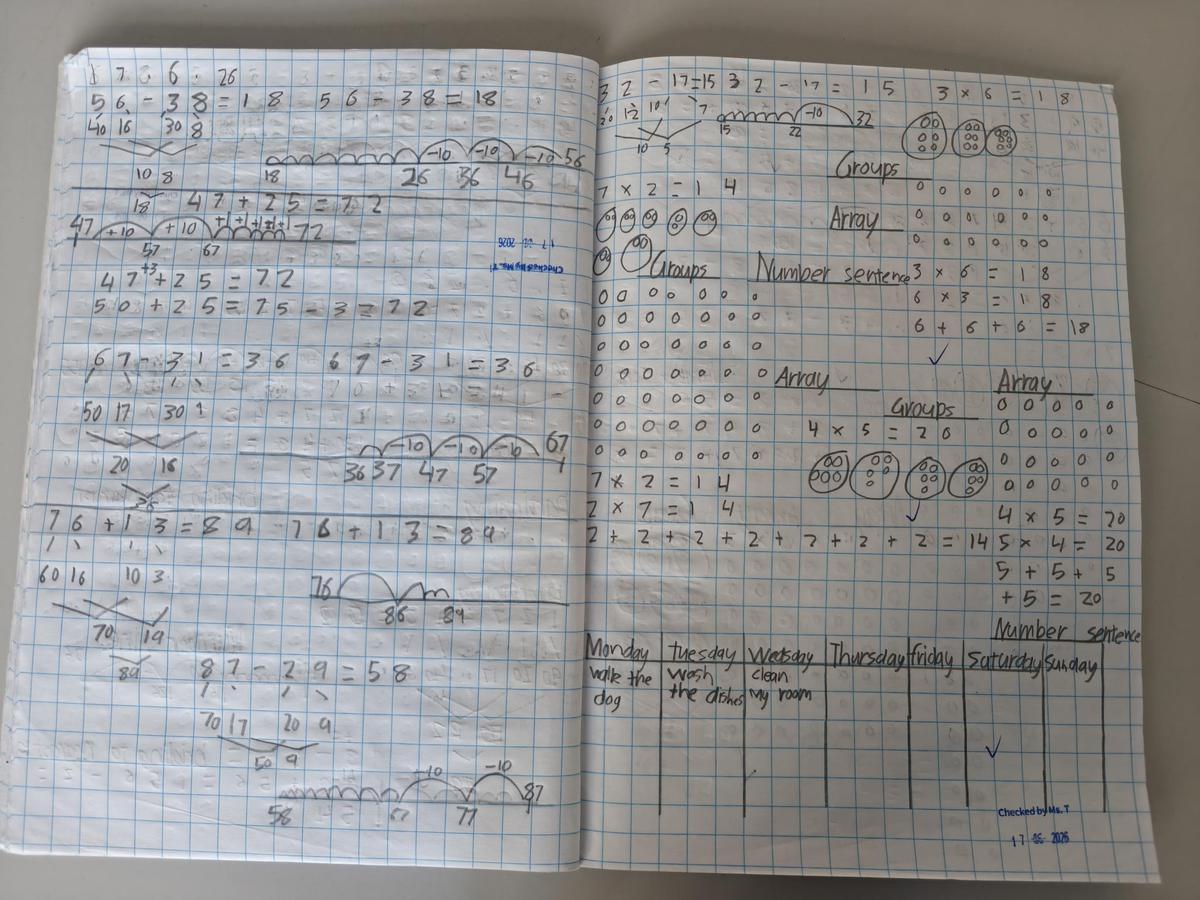 17.6.26
56 - 38 = 18 56 - 38 = 18
40 16 30 8
-10 -10 -10 56
10 8 18 26 36 46
18 47 + 25 = 72
47 +10 +10 +1 +1 +1 +1 +1 72
57 67
47 +3 + 25 = 72
50 + 25 = 75 - 3 = 72
67 - 31 = 36 67 - 31 = 36
50 17 30 1
-10 -10 -10 67
20 16 36 37 47 57
36
76 + 13 = 89 76 + 13 = 89
60 16 10 3
76
86 89
70 19
89 87 - 29 = 58
70 17 20 9
50 9
-10 -10
58 67 77 87
Checked by Ms. T
32 - 17 = 15 32 - 17 = 15 3 × 6 = 18
20 12 10 7 -10 32
15 22
10 5
Groups
7 × 2 = 14
Array
Groups Number sentence 3 × 6 = 18
6 × 3 = 18
6 + 6 + 6 = 18
Array Array
Groups
4 × 5 = 20
7 × 2 = 14
2 × 7 = 14 4 × 5 = 20
2 + 2 + 2 + 2 + 2 + 2 + 2 = 14 5 × 4 = 20
5 + 5 + 5
+ 5 = 20
Number sentence
Monday tuesday wedsday Thursday friday saturday sunday
walk the wash clean
dog the dishes my room
Checked by Ms. T